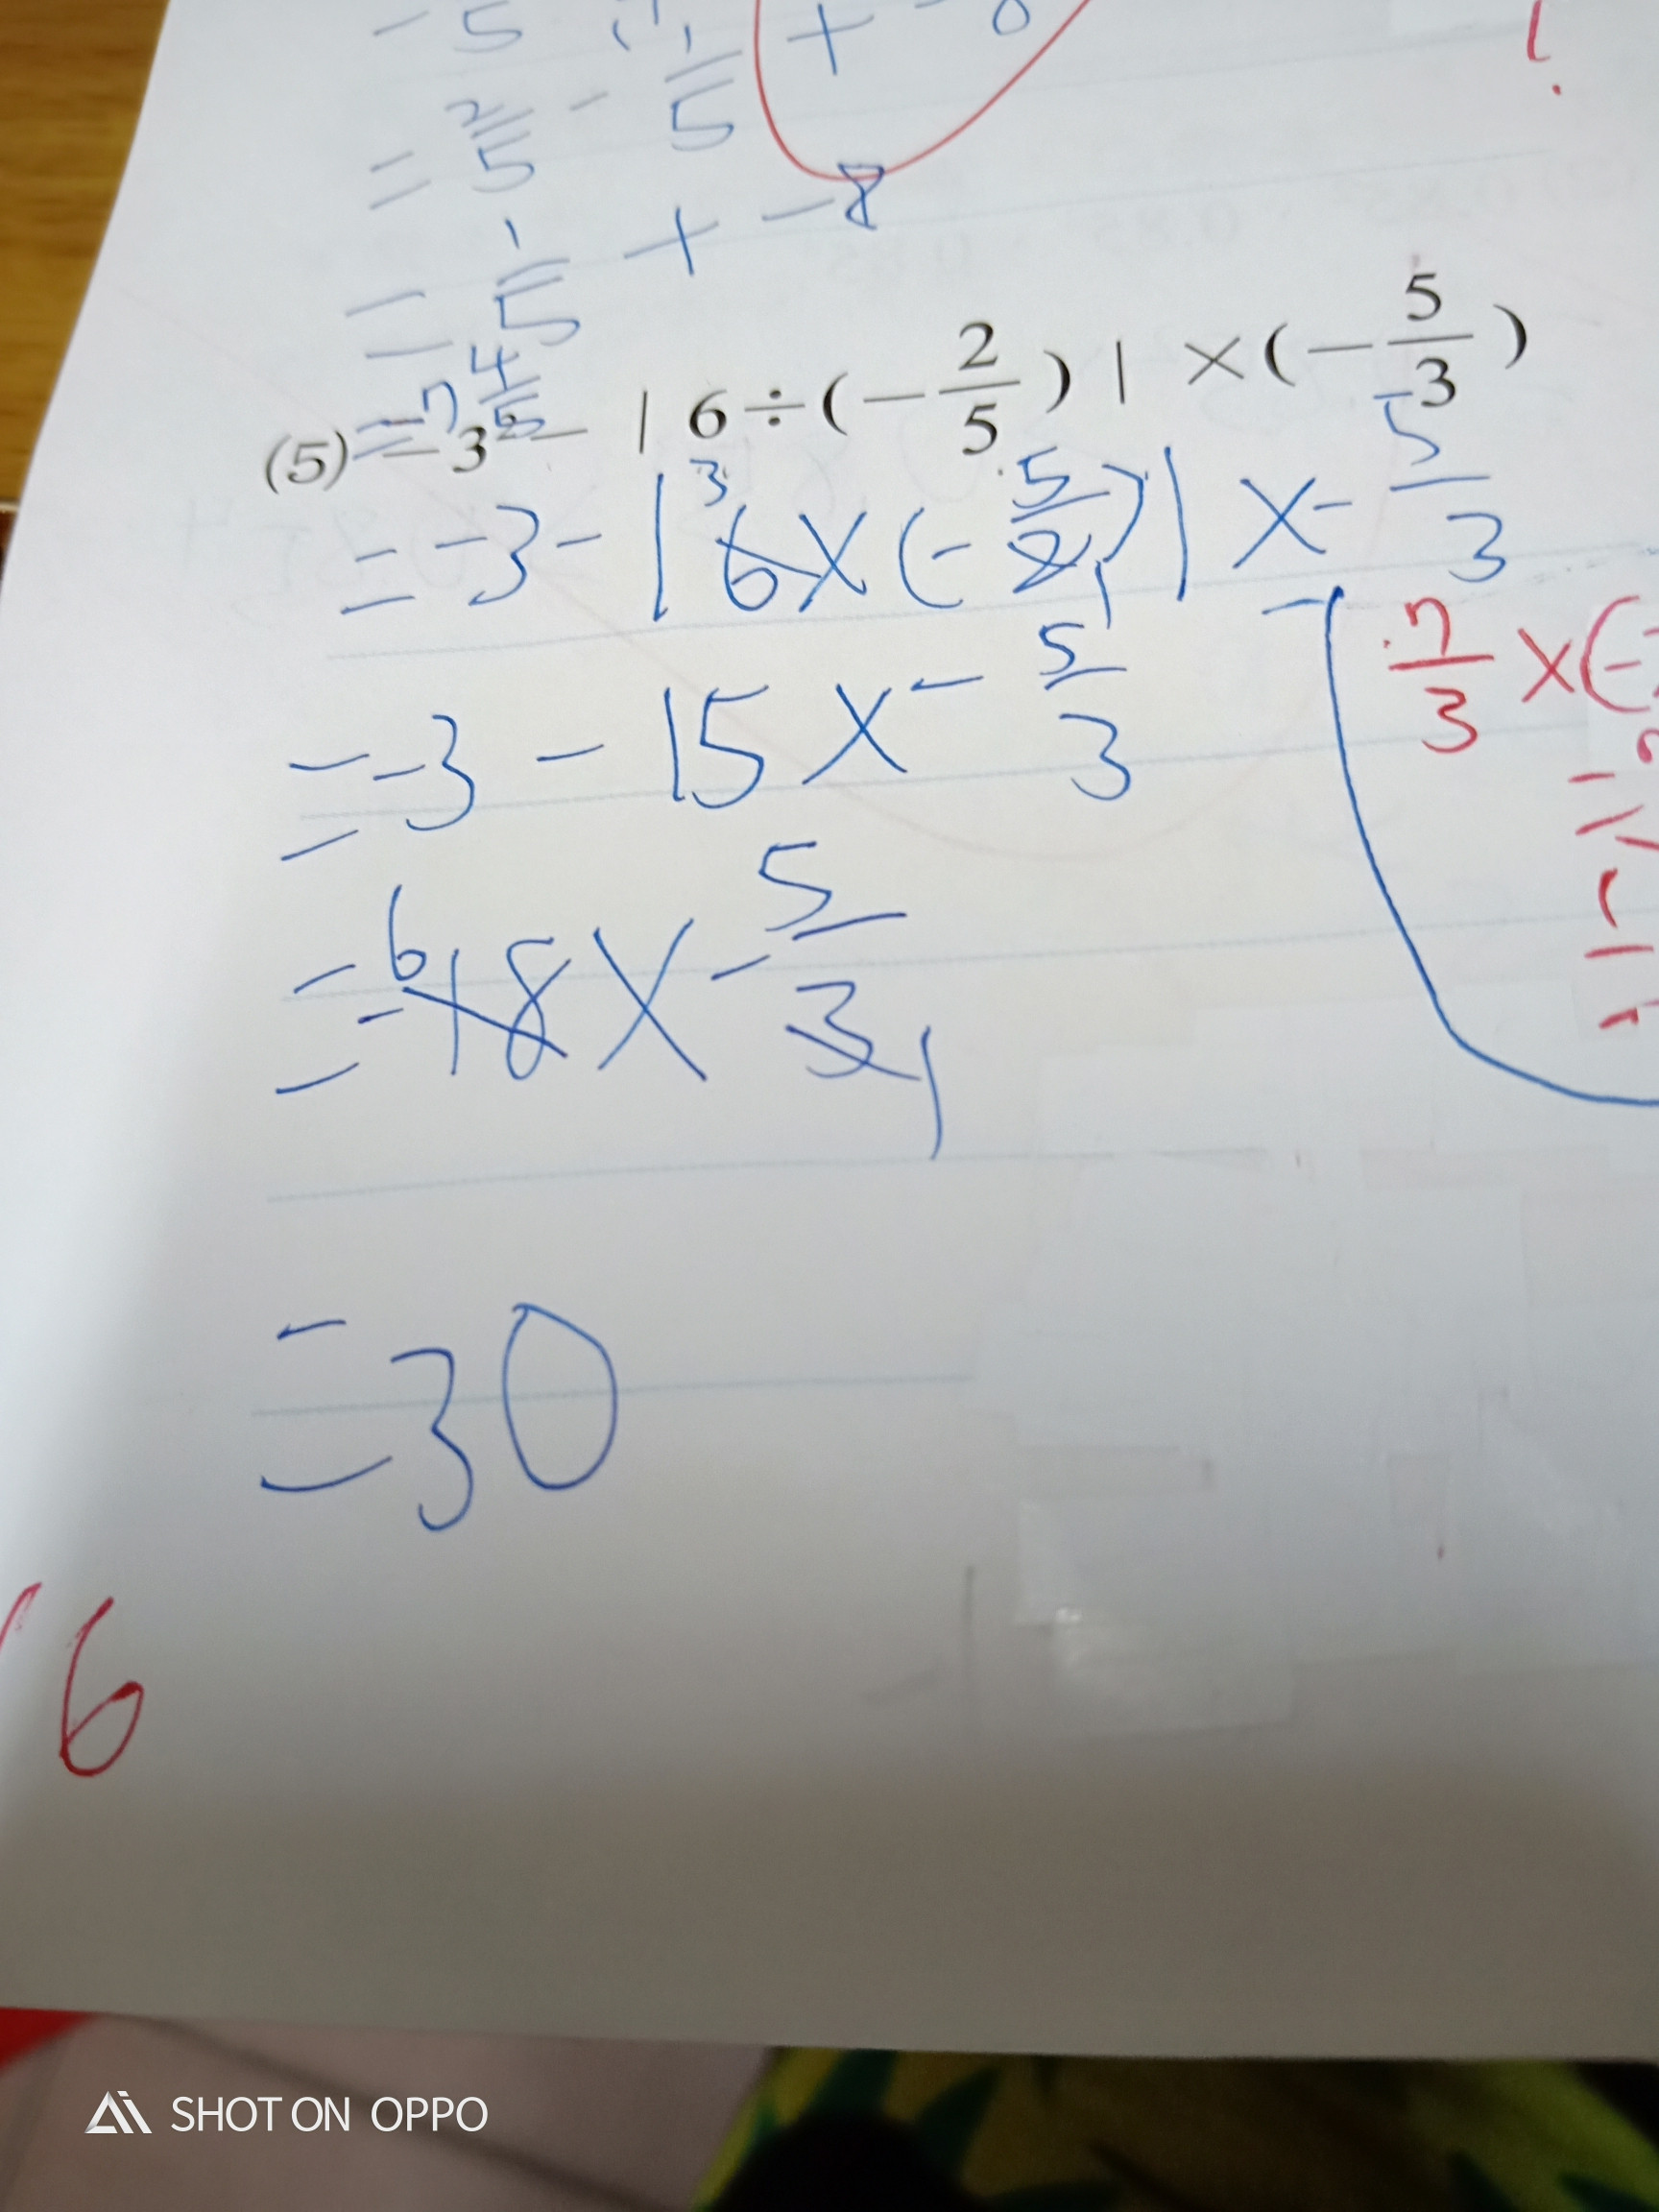 = 2/5 - 1/5 +
= 1/5 + -8
= -7 4/5
(5) -3² - | 6 ÷ ( - 2/5 ) | × ( - 5/3 )
= -3 - | 6 × ( - 5/2 ) | × - 5/3
= -3 - 15 × - 5/3
= -18 × - 5/3
= 30
7/3 × (-
6
SHOT ON OPPO